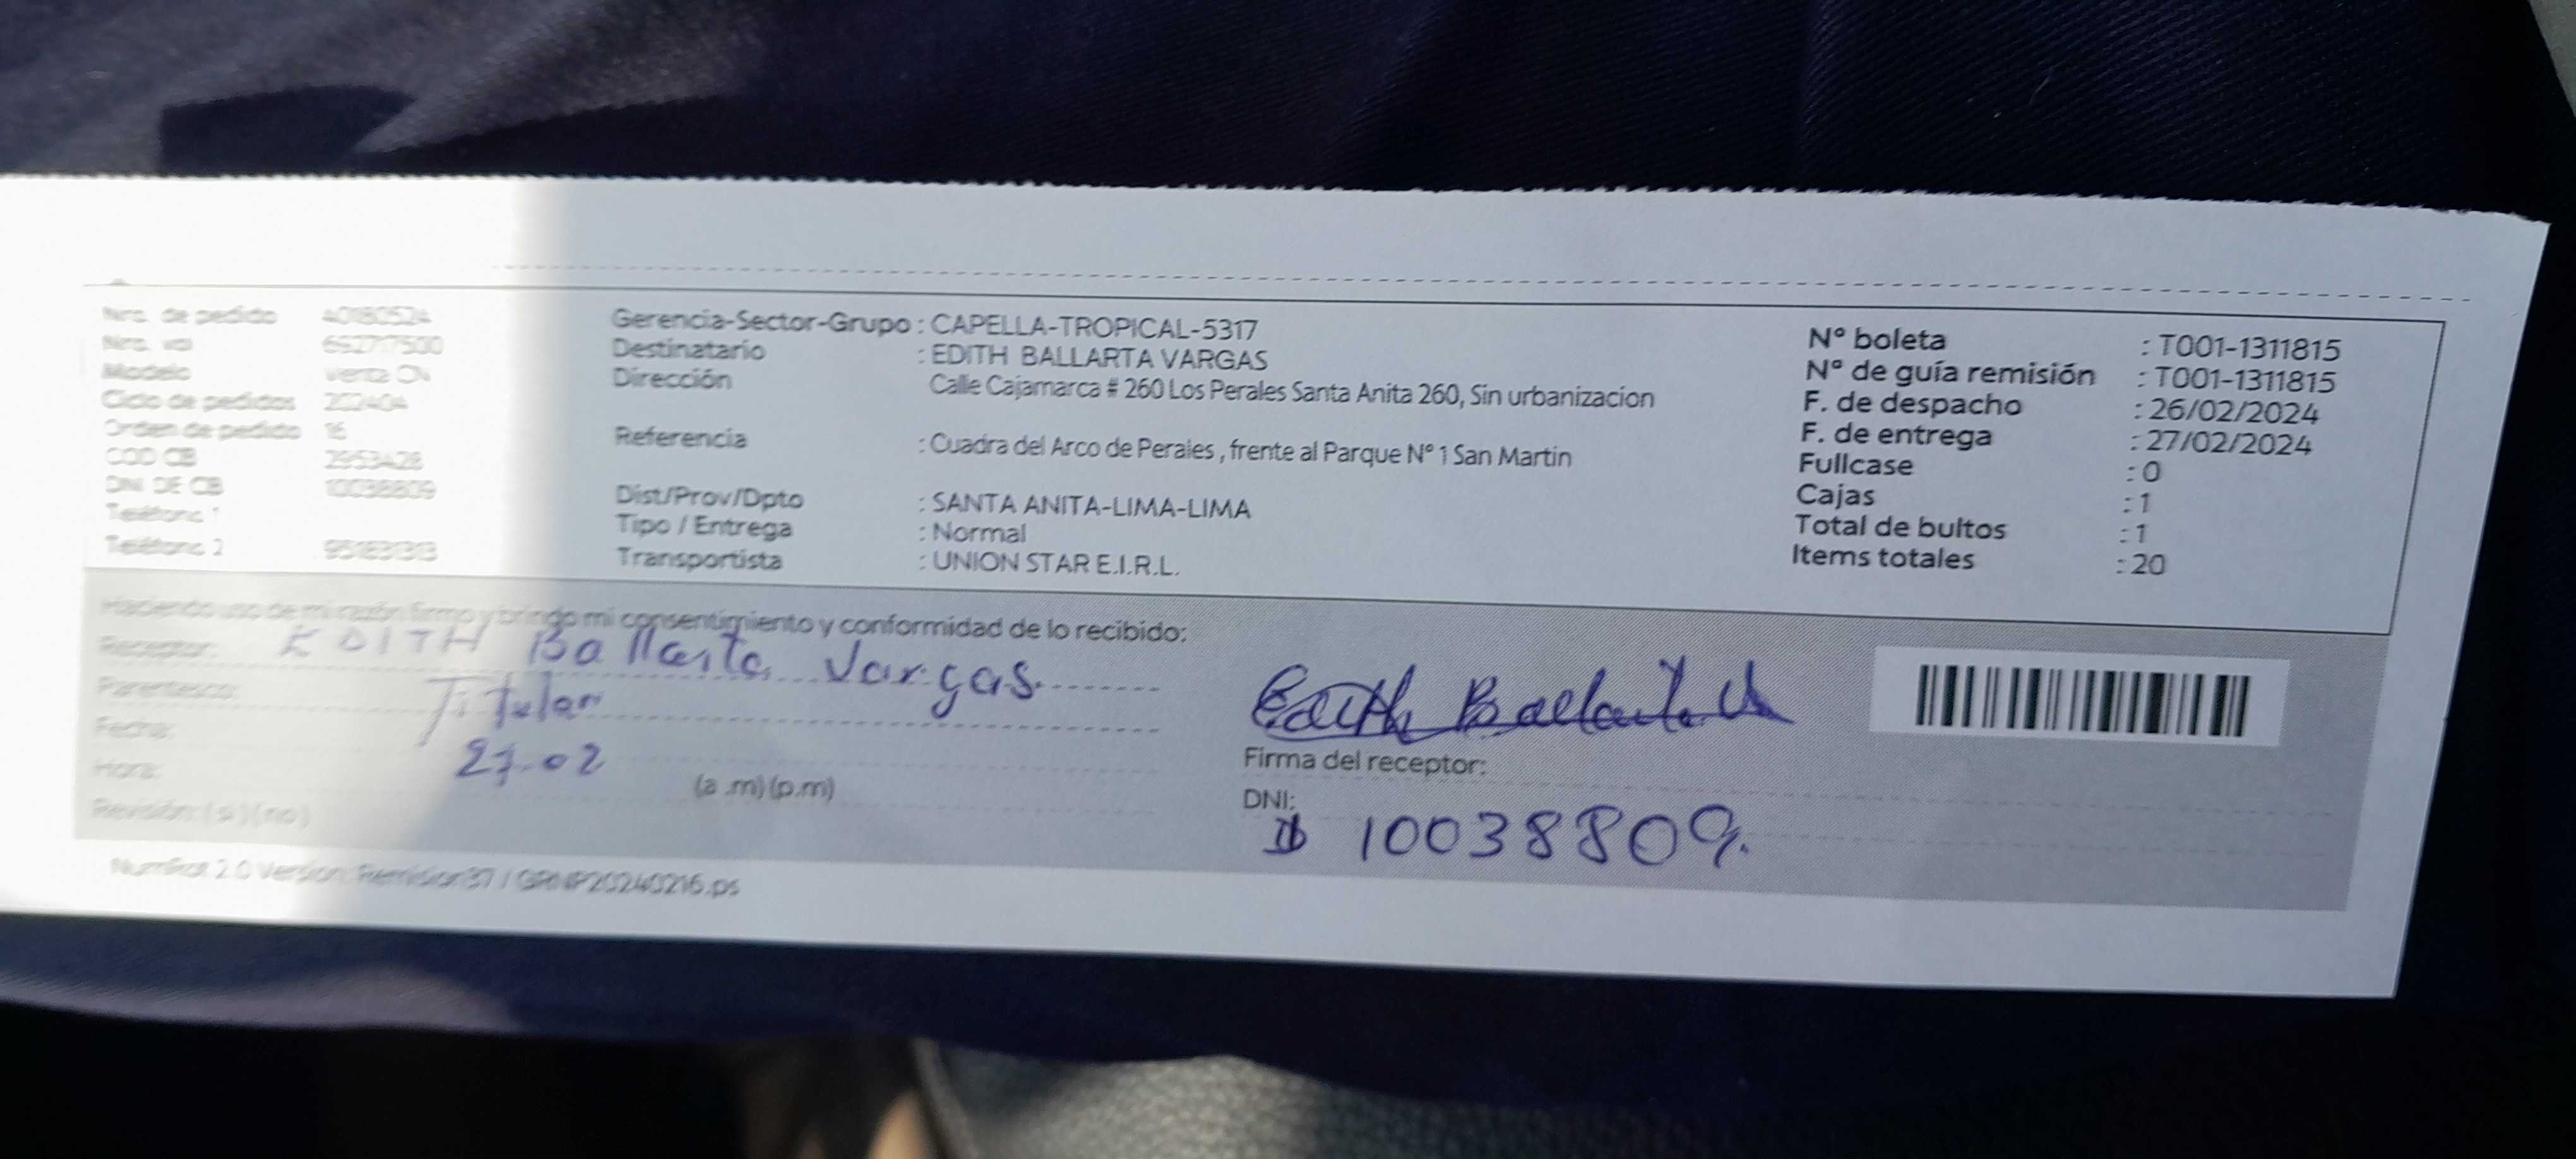 Nro. de pedido 40180524
Nro. val 692717500
Modelo Venta CN
Ciclo de pedidos 202404
Orden de pedido 16
COD CB 2953428
DNI DE CB 10038809
Teléfono 1
Teléfono 2 951831313
Gerencia-Sector-Grupo : CAPELLA-TROPICAL-5317
Destinatario : EDITH BALLARTA VARGAS
Dirección Calle Cajamarca # 260 Los Perales Santa Anita 260, Sin urbanizacion
Referencia : Cuadra del Arco de Perales , frente al Parque N° 1 San Martin
Dist/Prov/Dpto : SANTA ANITA-LIMA-LIMA
Tipo / Entrega : Normal
Transportista : UNION STAR E.I.R.L.
N° boleta : T001-1311815
N° de guía remisión : T001-1311815
F. de despacho : 26/02/2024
F. de entrega : 27/02/2024
Fullcase : 0
Cajas : 1
Total de bultos : 1
Items totales : 20
Haciendo uso de mi razón firmo y brindo mi consentimiento y conformidad de lo recibido:
Receptor: EDITH Ballarta Vargas.
Parentesco: Titular
Fecha: 27-02
Hora: (a .m) (p.m)
Revisión: ( si ) ( no )
Edith Ballarta V
Firma del receptor:
DNI:
10038809.